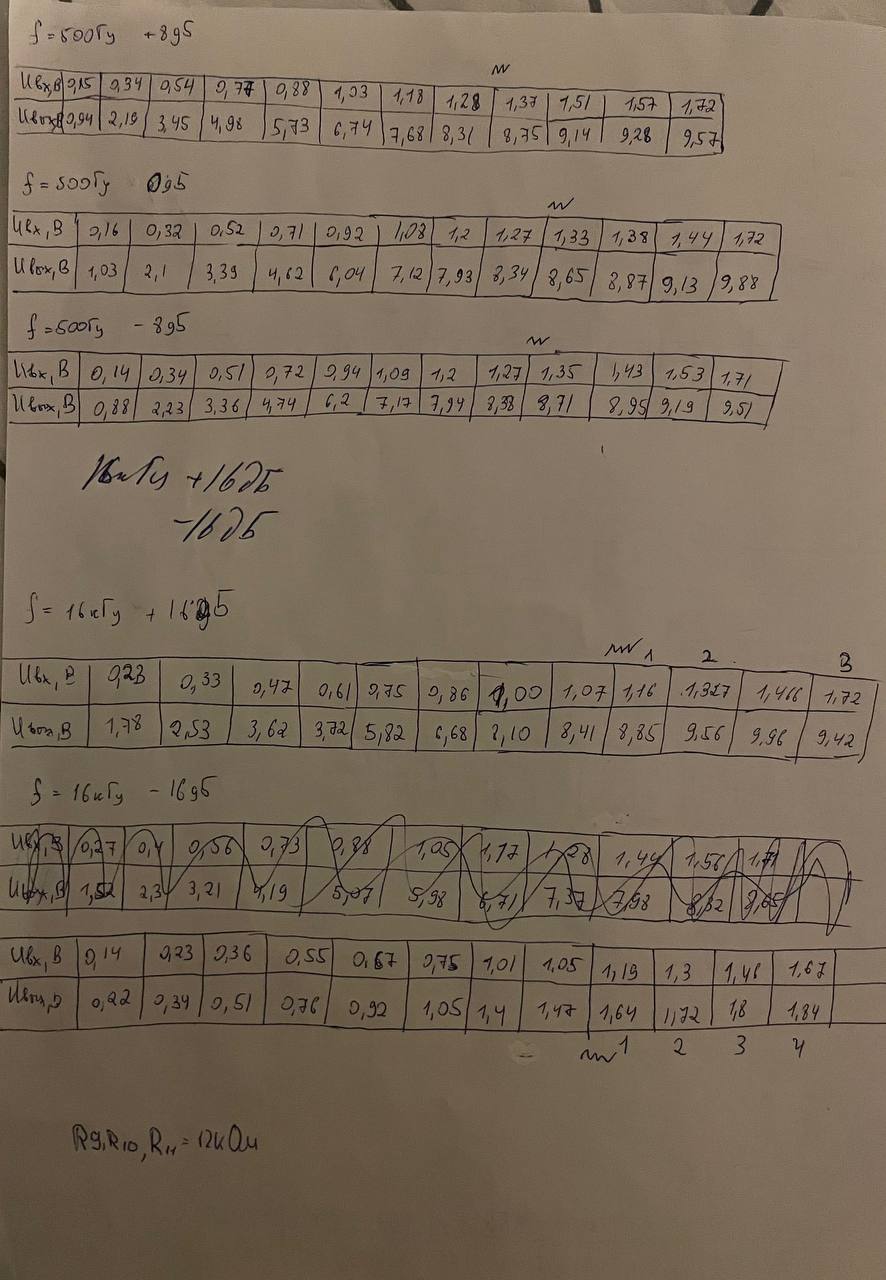 f = 500Гц +8дБ
Uвх,В 0,15 0,34 0,54 0,77 0,88 1,03 1,18 1,28 1,37 1,51 1,57 1,72
Uвых,В 0,94 2,19 3,45 4,98 5,73 6,74 7,68 8,31 8,75 9,14 9,28 9,57
f = 500Гц 0дБ
Uвх, В 0,16 0,32 0,52 0,71 0,92 1,08 1,2 1,27 1,33 1,38 1,44 1,72
Uвых,В 1,03 2,1 3,39 4,62 6,04 7,12 7,93 8,34 8,65 8,87 9,13 9,88
f = 500Гц - 8дБ
Uвх, В 0,14 0,34 0,51 0,72 0,94 1,09 1,2 1,27 1,35 1,43 1,53 1,71
Uвых, В 0,88 2,23 3,36 4,74 6,2 7,17 7,94 8,38 8,71 8,95 9,19 9,51
16кГц +16дБ
-16дБ
f = 16кГц + 16дБ
1 2 3
Uвх, В 0,23 0,33 0,47 0,61 0,75 0,86 1,00 1,07 1,16 1,327 1,466 1,72
Uвых,В 1,78 2,53 3,62 3,72 5,82 6,68 8,10 8,41 8,85 9,56 9,96 9,42
f = 16кГц - 16дБ
Uвх,В 0,27 0,4 0,56 0,73 0,88 1,05 1,17 1,28 1,44 1,56 1,71
Uвых,В 1,52 2,3 3,21 4,19 5,07 5,98 6,71 7,37 7,98 8,32 8,65
Uвх, В 0,14 0,23 0,36 0,55 0,67 0,75 1,01 1,05 1,19 1,3 1,46 1,67
Uвых,В 0,22 0,34 0,51 0,76 0,92 1,05 1,4 1,47 1,64 1,72 1,8 1,84
1 2 3 4
R9,R10,R11 = 12кОм